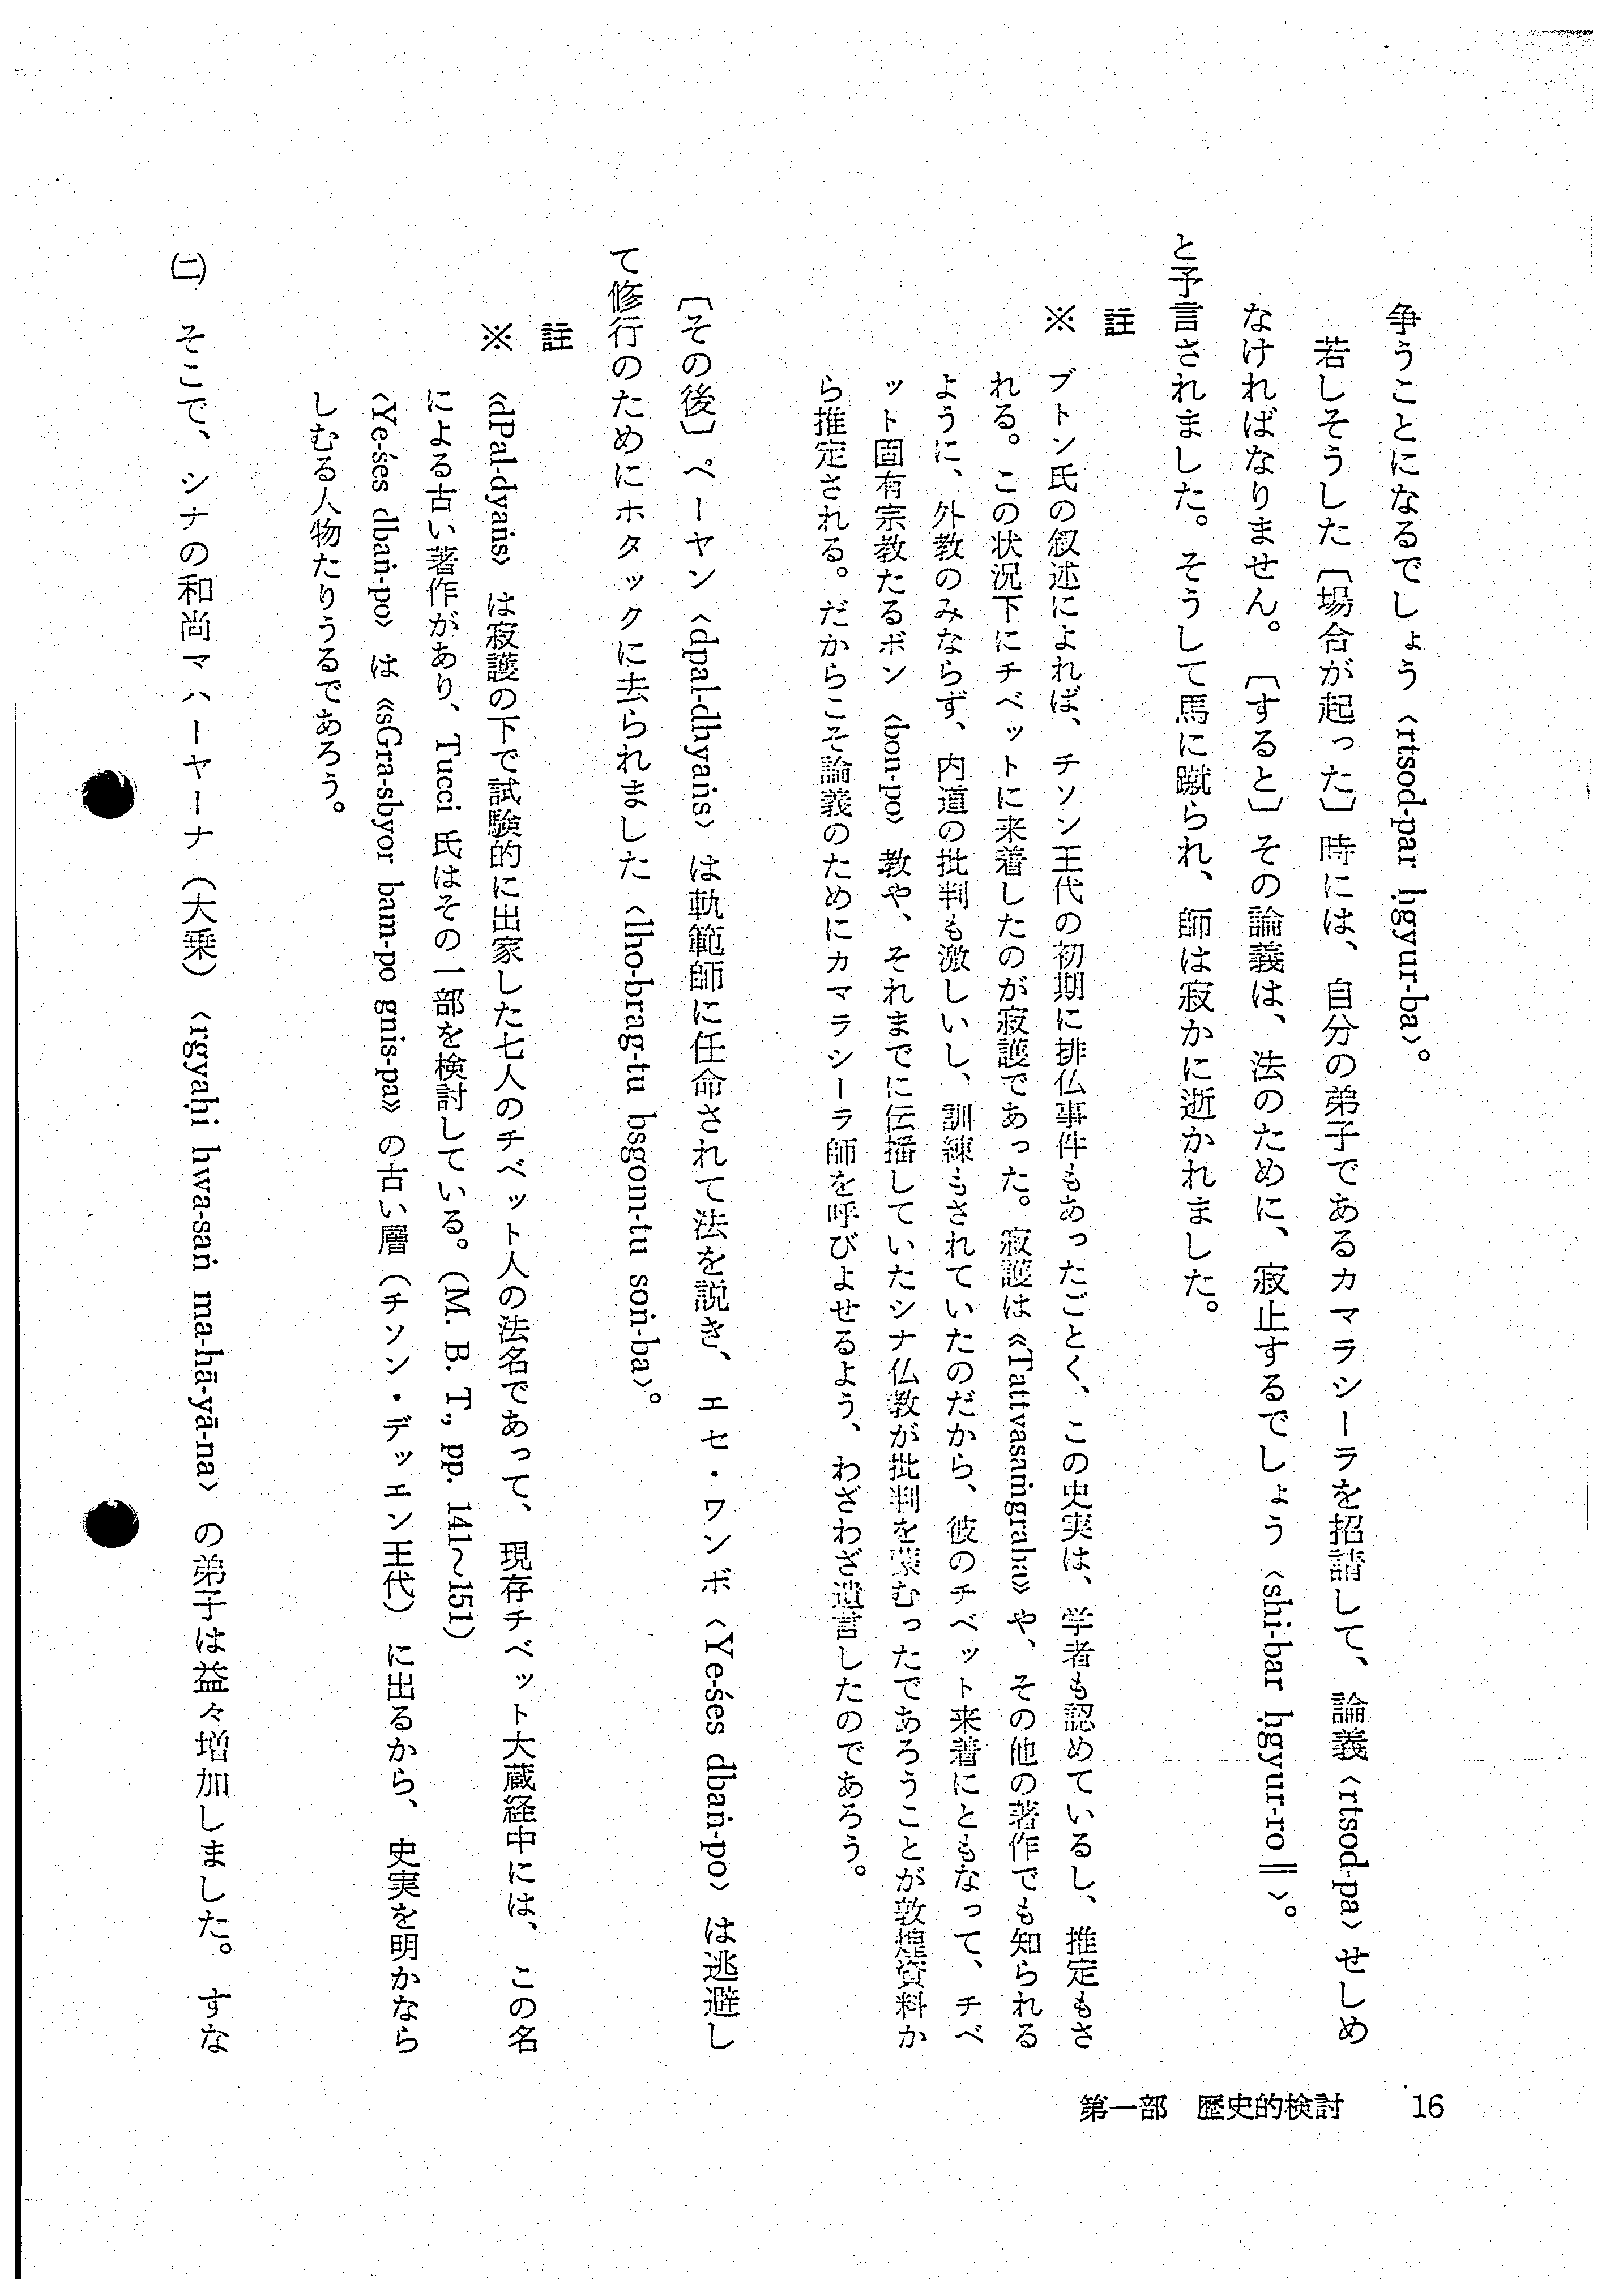 争うことになるでしょう〈rtsod-par ḥgyur-ba〉。
若しそうした〔場合が起った〕時には、自分の弟子であるカマラシーラを招請して、論義〈rtsod-pa〉せしめ
なければなりません。〔すると〕その論義は、法のために、寂止するでしょう〈shi-bar ḥgyur-ro ‖〉。
と予言されました。そうして馬に蹴られ、師は寂かに逝かれました。
註
※ ブトン氏の叙述によれば、チソン王代の初期に排仏事件もあったごとく、この史実は、学者も認めているし、推定もさ
れる。この状況下にチベットに来着したのが寂護であった。寂護は《Tattvasaṁgraha》や、その他の著作でも知られる
ように、外教のみならず、内道の批判も激しいし、訓練もされていたのだから、彼のチベット来着にともなって、チベ
ット固有宗教たるボン〈bon-po〉教や、それまでに伝播していたシナ仏教が批判を蒙むったであろうことが敦煌資料か
ら推定される。だからこそ論義のためにカマラシーラ師を呼びよせるよう、わざわざ遺言したのであろう。
〔その後〕ペーヤン〈dpal-dhyaṅs〉は軌範師に任命されて法を説き、エセ・ワンボ〈Ye-śes dbaṅ-po〉は逃避し
て修行のためにホタックに去られました〈lho-brag-tu bsgom-tu soṅ-ba〉。
註
※ 〈dPal-dyaṅs〉は寂護の下で試験的に出家した七人のチベット人の法名であって、現存チベット大蔵経中には、この名
による古い著作があり、Tucci 氏はその一部を検討している。(M. B. T., pp. 141〜151)
〈Ye-śes dbaṅ-po〉は《sGra-sbyor bam-po gnis-pa》の古い層（チソン・デッェン王代）に出るから、史実を明かなら
しむる人物たりうるであろう。
㈡ そこで、シナの和尚マハーヤーナ（大乗）〈rgyaḥi hwa-saṅ ma-hā-yā-na〉の弟子は益々増加しました。すな
第一部 歴史的検討 16